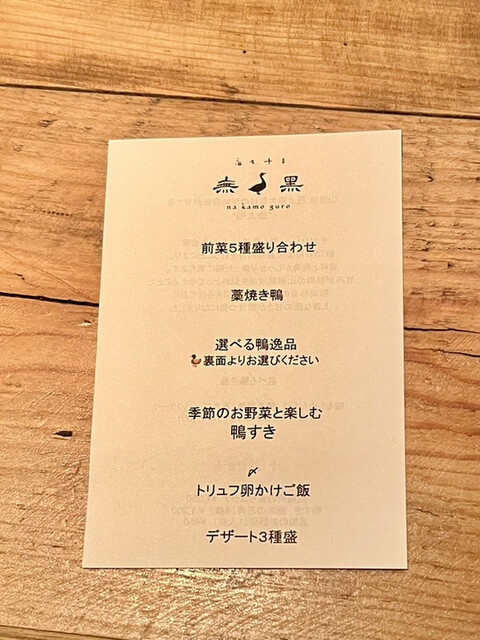 無 黒
na kamo guro
前菜5種盛り合わせ
藁焼き鴨
選べる鴨逸品
裏面よりお選びください
季節のお野菜と楽しむ
鴨すき
〆
トリュフ卵かけご飯
デザート3種盛